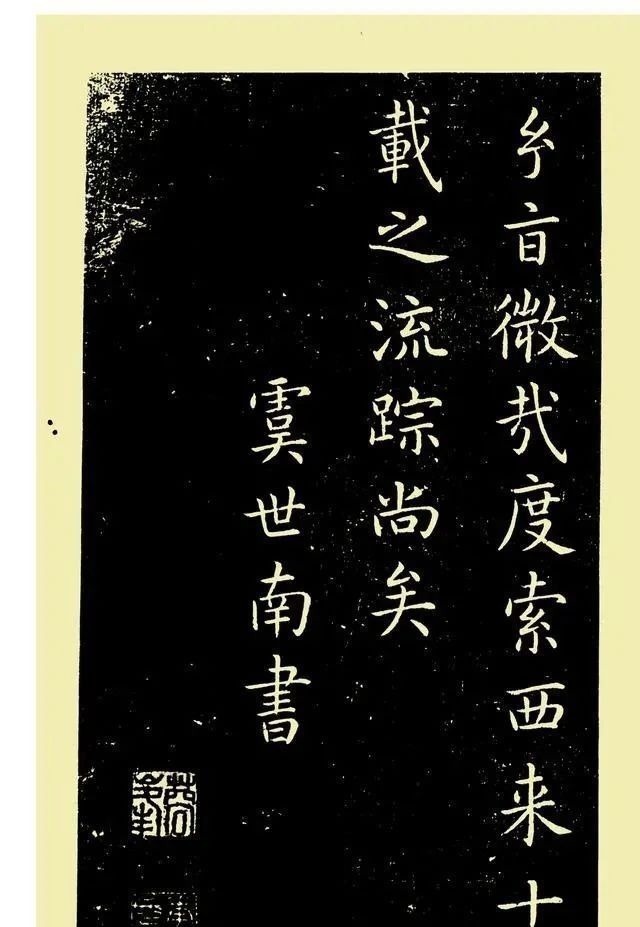 旨微哉度索西来十
載之流踪尚矣
虞世南書